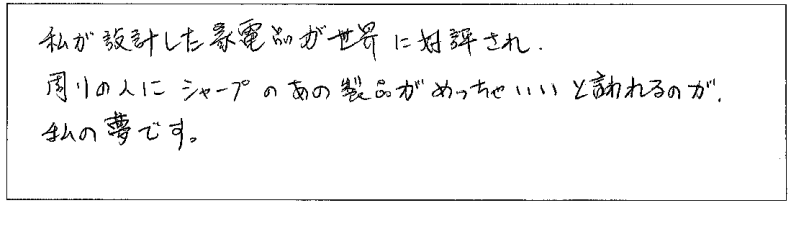 私が設計した家電品が世界に好評され、
周りの人にシャープのあの製品がめっちゃいいと言われるのが、
私の夢です。